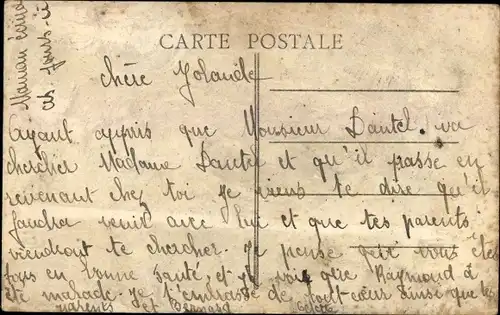 CARTE POSTALE
Maman écrira
ces jours-ci
Chère Yolande
Ayant appris que Monsieur Dantel. va
chercher Madame Dantel et qu'il passe en
revenant chez toi je viens te dire qu'il
faudra venir avec lui et que tes parents
viendront te chercher. Je pense que vous êtes
tous en bonne santé et je vois que Raymond a
été malade. Je t'embrasse de tout cœur ainsi que tes
parents et Bernard